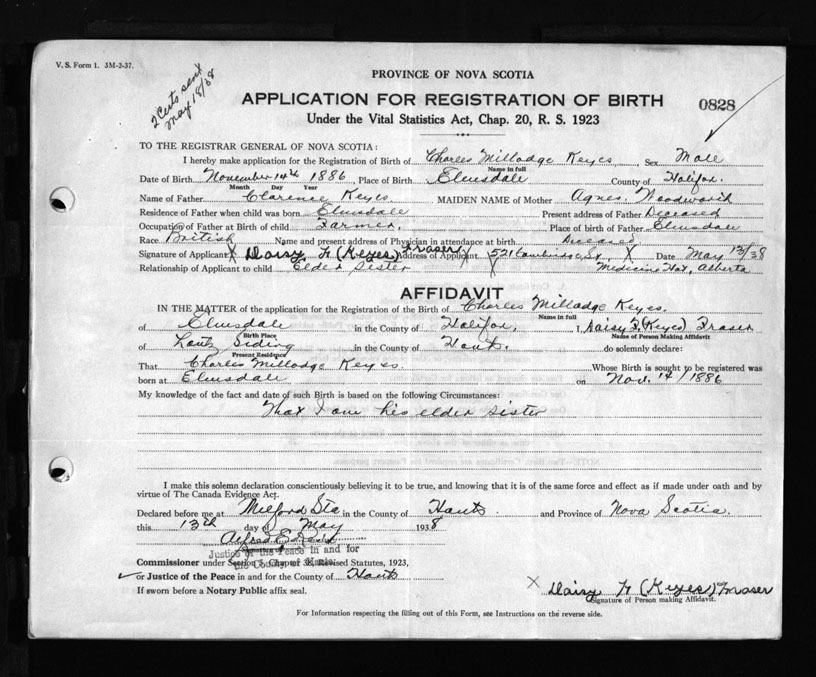 V. S. Form 1. 3M-2-37.
2 Certs sent
May 18/38
PROVINCE OF NOVA SCOTIA
APPLICATION FOR REGISTRATION OF BIRTH 0828
Under the Vital Statistics Act, Chap. 20, R. S. 1923
TO THE REGISTRAR GENERAL OF NOVA SCOTIA:
I hereby make application for the Registration of Birth of Charles Milladge Keyes, Sex Male
Name in full
Date of Birth November 14th 1886, Place of Birth Elmsdale County of Halifax.
Month Day Year
Name of Father Clarence Keyes. MAIDEN NAME of Mother Agnes. Woodworth
Residence of Father when child was born Elmsdale Present address of Father Deceased
Occupation of Father at Birth of child Farmer. Place of birth of Father Elmsdale
Race British Name and present address of Physician in attendance at birth Deceased
Signature of Applicant X Daisy F (Keyes) Fraser X Address of Applicant 521 Cambridge St. X Date May 13/38
Relationship of Applicant to child Elder Sister Medicine Hat, Alberta
AFFIDAVIT
IN THE MATTER of the application for the Registration of the Birth of Charles Milladge Keyes.
Name in full
of Elmsdale in the County of Halifax, I, Daisy F. (Keyes) Fraser
Birth Place Name of Person Making Affidavit
of Lantz Siding in the County of Hants. do solemnly declare:
Present Residence
That Charles Milladge Keyes Whose Birth is sought to be registered was
born at Elmsdale on Nov. 14/1886
My knowledge of the fact and date of such Birth is based on the following Circumstances:
That I am his elder sister
I make this solemn declaration conscientiously believing it to be true, and knowing that it is of the same force and effect as if made under oath and by
virtue of The Canada Evidence Act.
Declared before me at Milford Sta in the County of Hants and Province of Nova Scotia.
this 13th day of May 1938
Alfred E
Justice of the Peace in and for
the County of Hants
Commissioner under Section 5, Chapter 38, Revised Statutes, 1923,
or Justice of the Peace in and for the County of Hants
If sworn before a Notary Public affix seal.
X Daisy F (Keyes) Fraser
Signature of Person making Affidavit.
For Information respecting the filling out of this Form, see Instructions on the reverse side.